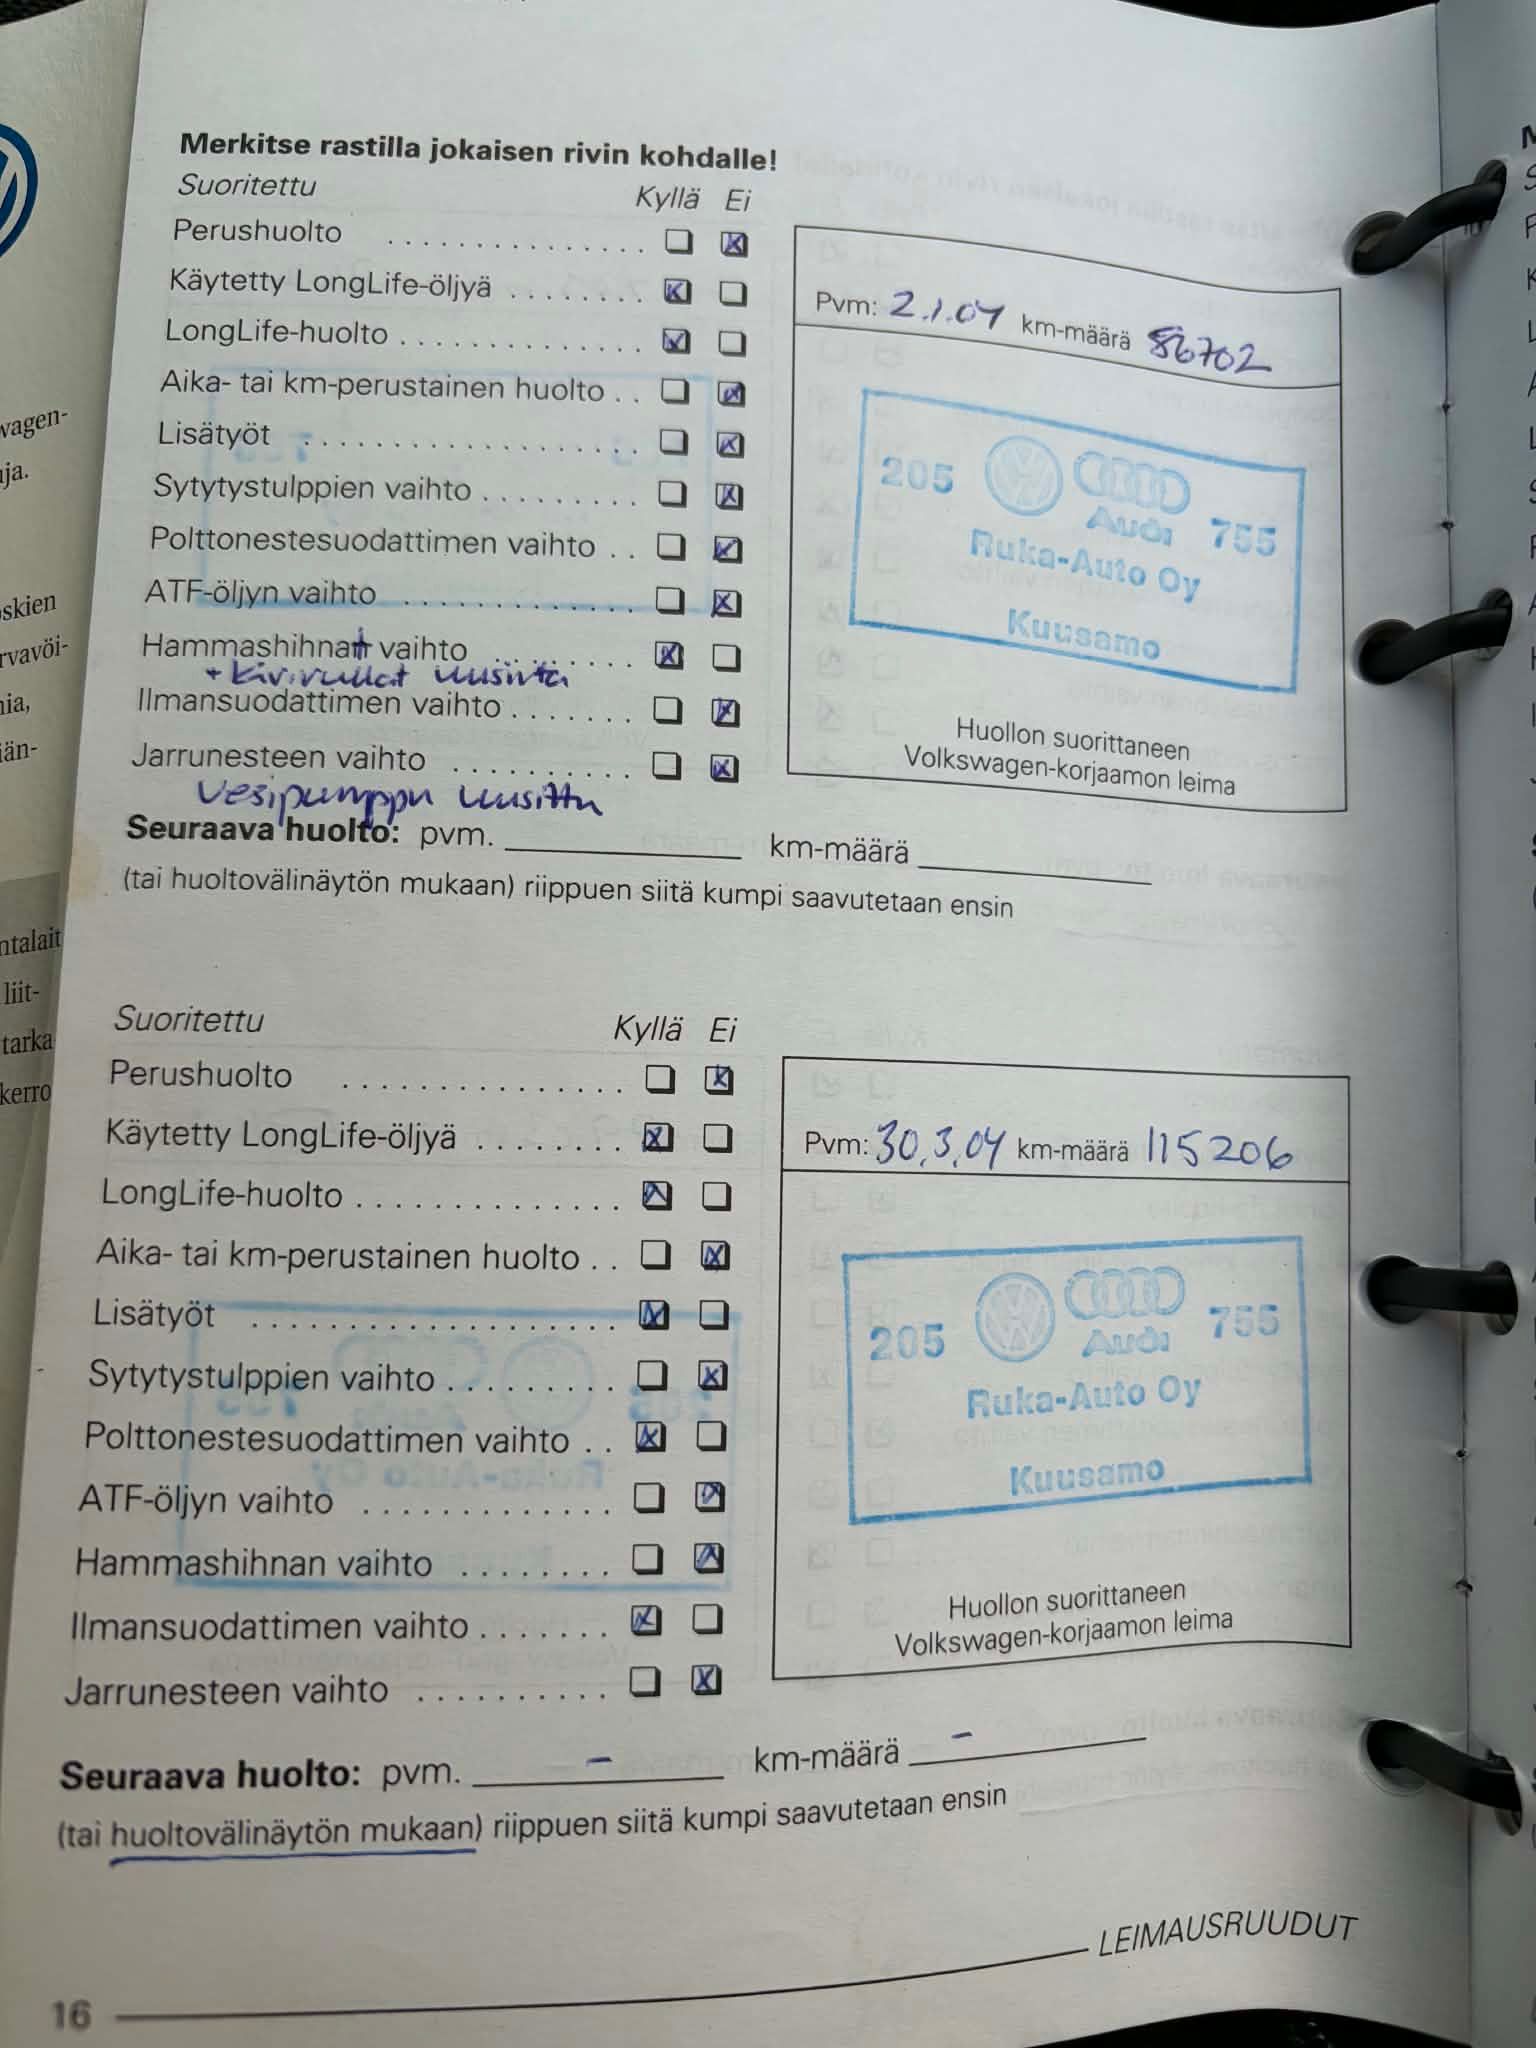 Merkitse rastilla jokaisen rivin kohdalle!
Suoritettu Kyllä Ei
Perushuolto
Käytetty LongLife-öljyä
LongLife-huolto
Aika- tai km-perustainen huolto
Lisätyöt
Sytytystulppien vaihto
Polttonestesuodattimen vaihto
ATF-öljyn vaihto
Hammashihnat vaihto
+ kivirullat uusittu
Ilmansuodattimen vaihto
Jarrunesteen vaihto
Vesipumppu uusittu
Seuraava huolto: pvm. km-määrä
(tai huoltovälinäytön mukaan) riippuen siitä kumpi saavutetaan ensin
Pvm: 2.1.04 km-määrä 86702
205 Audi 755
Ruka-Auto Oy
Kuusamo
Huollon suorittaneen
Volkswagen-korjaamon leima
Suoritettu Kyllä Ei
Perushuolto
Käytetty LongLife-öljyä
LongLife-huolto
Aika- tai km-perustainen huolto
Lisätyöt
Sytytystulppien vaihto
Polttonestesuodattimen vaihto
ATF-öljyn vaihto
Hammashihnan vaihto
Ilmansuodattimen vaihto
Jarrunesteen vaihto
Seuraava huolto: pvm. - km-määrä -
(tai huoltovälinäytön mukaan) riippuen siitä kumpi saavutetaan ensin
Pvm: 30.3.04 km-määrä 115206
205 Audi 755
Ruka-Auto Oy
Kuusamo
Huollon suorittaneen
Volkswagen-korjaamon leima
LEIMAUSRUUDUT
16
wagen-
ja.
skien
rvavöi-
nia,
iän-
ntalait
liit-
tarka
kerro